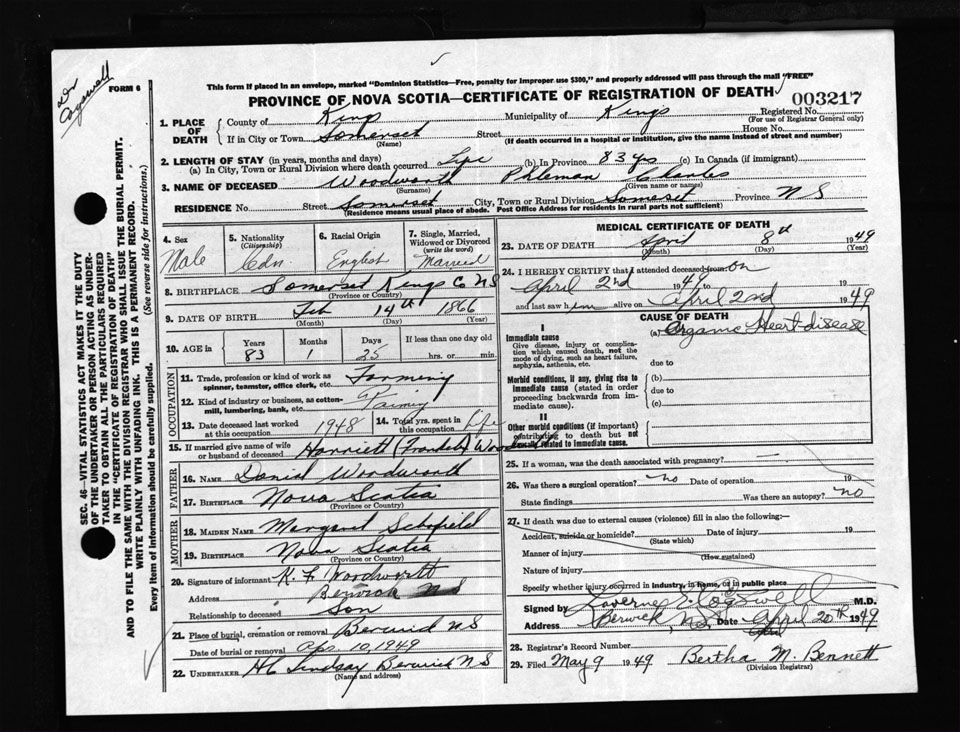 Dr Cogswell
FORM 6
This form if placed in an envelope, marked "Dominion Statistics—Free, penalty for improper use $300," and properly addressed will pass through the mail "FREE"
PROVINCE OF NOVA SCOTIA—CERTIFICATE OF REGISTRATION OF DEATH
003217
1. PLACE OF DEATH
County of Kings Municipality of Kings Registered No.
(For use of Registrar General only)
If in City or Town Somerset Street House No.
(Name) (If death occurred in a hospital or institution, give the name instead of street and number)
2. LENGTH OF STAY (in years, months and days)
(a) In City, Town or Rural Division where death occurred Life (b) In Province 83 yrs (c) In Canada (if immigrant)
3. NAME OF DECEASED Woodworth Phleman Charles
(Surname) (Given name or names)
RESIDENCE No. Street Somerset City, Town or Rural Division Somerset Province N S
(Residence means usual place of abode. Post Office Address for residents in rural parts not sufficient)
4. Sex Male
5. Nationality (Citizenship) Cdn.
6. Racial Origin English
7. Single, Married, Widowed or Divorced (write the word) Married
8. BIRTHPLACE Somerset Kings Co N S
(Province or Country)
9. DATE OF BIRTH Feb 14th 1866
(Month) (Day) (Year)
10. AGE in Years 83 Months 1 Days 25 If less than one day old hrs. or min.
OCCUPATION
11. Trade, profession or kind of work as spinner, teamster, office clerk, etc. Farming
12. Kind of industry or business, as cotton-mill, lumbering, bank, etc. Farming
13. Date deceased last worked at this occupation 1948
14. Total yrs. spent in this occupation Life
15. If married give name of wife or husband of deceased Harriett
FATHER
16. NAME Daniel Woodworth
17. BIRTHPLACE Nova Scotia
(Province or Country)
MOTHER
18. MAIDEN NAME Margaret Schofield
19. BIRTHPLACE Nova Scotia
(Province or Country)
20. Signature of informant K. F. Woodworth
Address Berwick NS
Relationship to deceased Son
21. Place of burial, cremation or removal Berwick N S
Date of burial or removal Apr. 10, 1949
22. UNDERTAKER HC Lindsay Berwick N S
(Name and address)
MEDICAL CERTIFICATE OF DEATH
23. DATE OF DEATH April 8th 1949
(Month) (Day) (Year)
24. I HEREBY CERTIFY that I attended deceased from: on
April 2nd 1949 to 19
and last saw him alive on April 2nd 1949
CAUSE OF DEATH
I
Immediate cause
Give disease, injury or complication which caused death, not the mode of dying, such as heart failure, asphyxia, asthenia, etc.
(a) Organic Heart disease
due to
Morbid conditions, if any, giving rise to immediate cause (stated in order proceeding backwards from immediate cause).
(b)
due to
(c)
II
Other morbid conditions (if important) contributing to death but not causally related to immediate cause.
25. If a woman, was the death associated with pregnancy? —
26. Was there a surgical operation? no Date of operation 19
State findings Was there an autopsy? no
27. If death was due to external causes (violence) fill in also the following:—
Accident, suicide or homicide? Date of injury 19
(State which)
Manner of injury
(How sustained)
Nature of injury
Specify whether injury occurred in industry, in home, or in public place
Signed by Laverne E. Cogswell M.D.
Address Berwick, N.S. Date April 20th 1949
28. Registrar's Record Number
29. Filed May 9 1949 Bertha M. Bennett
(Division Registrar)
SEC. 46—VITAL STATISTICS ACT MAKES IT THE DUTY
OF THE UNDERTAKER OR PERSON ACTING AS UNDER-
TAKER TO OBTAIN ALL THE PARTICULARS REQUIRED
IN THE "CERTIFICATE OF REGISTRATION OF DEATH"
AND TO FILE THE SAME WITH THE DIVISION REGISTRAR WHO SHALL ISSUE THE BURIAL PERMIT.
WRITE PLAINLY WITH UNFADING INK. THIS IS A PERMANENT RECORD.
Every item of Information should be carefully supplied. (See reverse side for instructions.)